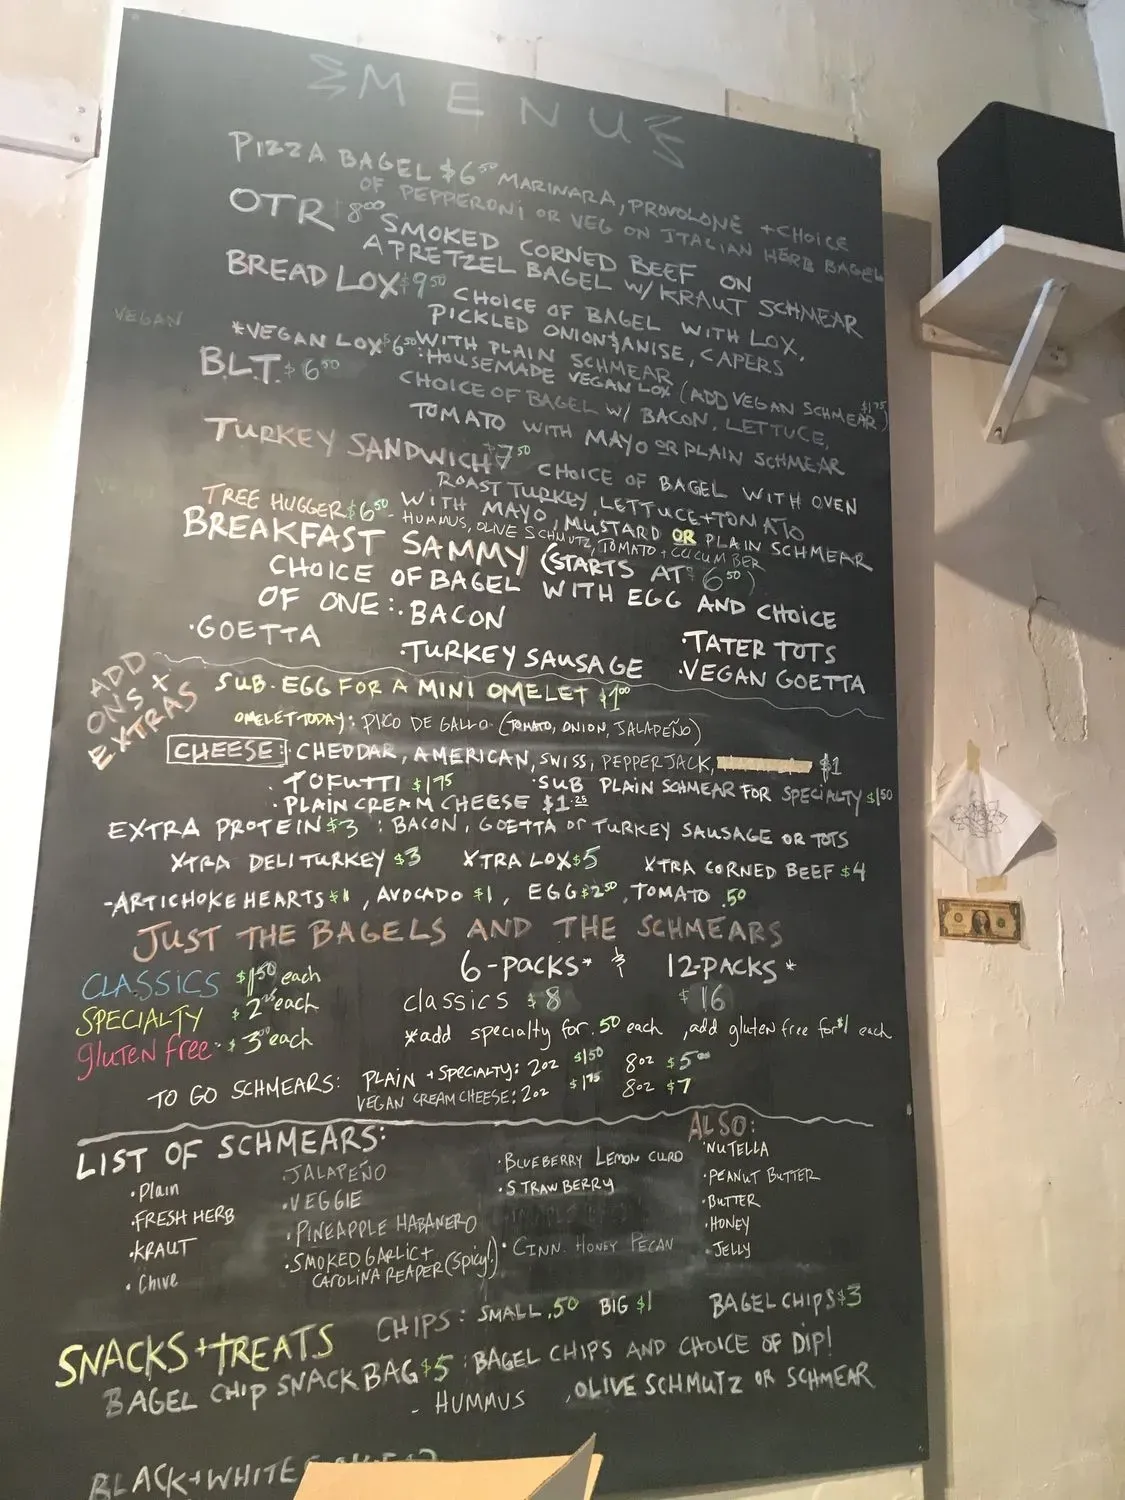 MENU
PIZZA BAGEL $6.50 MARINARA, PROVOLONE + CHOICE
OF PEPPERONI OR VEG ON ITALIAN HERB BAGEL
OTR 8.00 SMOKED CORNED BEEF ON
A PRETZEL BAGEL W/ KRAUT SCHMEAR
BREAD LOX $9.50 CHOICE OF BAGEL WITH LOX,
PICKLED ONION & ANISE, CAPERS
WITH PLAIN SCHMEAR
VEGAN
*VEGAN LOX $6.50 : HOUSEMADE VEGAN LOX (ADD VEGAN SCHMEAR $1.75)
B.L.T. $6.50 CHOICE OF BAGEL W/ BACON, LETTUCE,
TOMATO WITH MAYO OR PLAIN SCHMEAR
TURKEY SANDWICH $7.50 CHOICE OF BAGEL WITH OVEN
ROAST TURKEY, LETTUCE + TOMATO
WITH MAYO, MUSTARD OR PLAIN SCHMEAR
TREE HUGGER $6.50 - HUMMUS, OLIVE SCHMUTZ, TOMATO + CUCUMBER
BREAKFAST SAMMY (STARTS AT $6.50)
CHOICE OF BAGEL WITH EGG AND CHOICE
OF ONE: • BACON
• GOETTA • TURKEY SAUSAGE • TATER TOTS
• VEGAN GOETTA
ADD
ONS X
EXTRAS
SUB. EGG FOR A MINI OMELET $1.00
OMELET TODAY: PICO DE GALLO (TOMATO, ONION, JALAPEÑO)
CHEESE: CHEDDAR, AMERICAN, SWISS, PEPPER JACK, $1
• TOFUTTI $1.75 • SUB PLAIN SCHMEAR FOR SPECIALTY $1.50
• PLAIN CREAM CHEESE $1.25
EXTRA PROTEIN $3 : BACON, GOETTA or TURKEY SAUSAGE OR TOTS
XTRA DELI TURKEY $3 XTRA LOX $5 XTRA CORNED BEEF $4
-ARTICHOKE HEARTS $1, AVOCADO $1, EGG $2.50, TOMATO .50
JUST THE BAGELS AND THE SCHMEARS
CLASSICS $1.50 each
SPECIALTY $2.00 each
gluten free - $3.00 each
6-PACKS* & 12-PACKS*
classics $8 $16
*add specialty for .50 each, add gluten free for $1 each
TO GO SCHMEARS: PLAIN + SPECIALTY: 2oz $1.50 8oz $5.00
VEGAN CREAM CHEESE: 2oz $1.75 8oz $7
LIST OF SCHMEARS:
• Plain
• FRESH HERB
• KRAUT
• Chive
• JALAPEÑO
• VEGGIE
• PINEAPPLE HABANERO
• SMOKED GARLIC +
CAROLINA REAPER (Spicy!)
• BLUEBERRY LEMON CURD
• STRAWBERRY
• CINN. HONEY PECAN
ALSO:
• NUTELLA
• PEANUT BUTTER
• BUTTER
• HONEY
• JELLY
SNACKS + TREATS CHIPS: SMALL .50 BIG $1 BAGEL CHIPS $3
BAGEL CHIP SNACK BAG $5 : BAGEL CHIPS AND CHOICE OF DIP!
- HUMMUS, OLIVE SCHMUTZ OR SCHMEAR
BLACK + WHITE